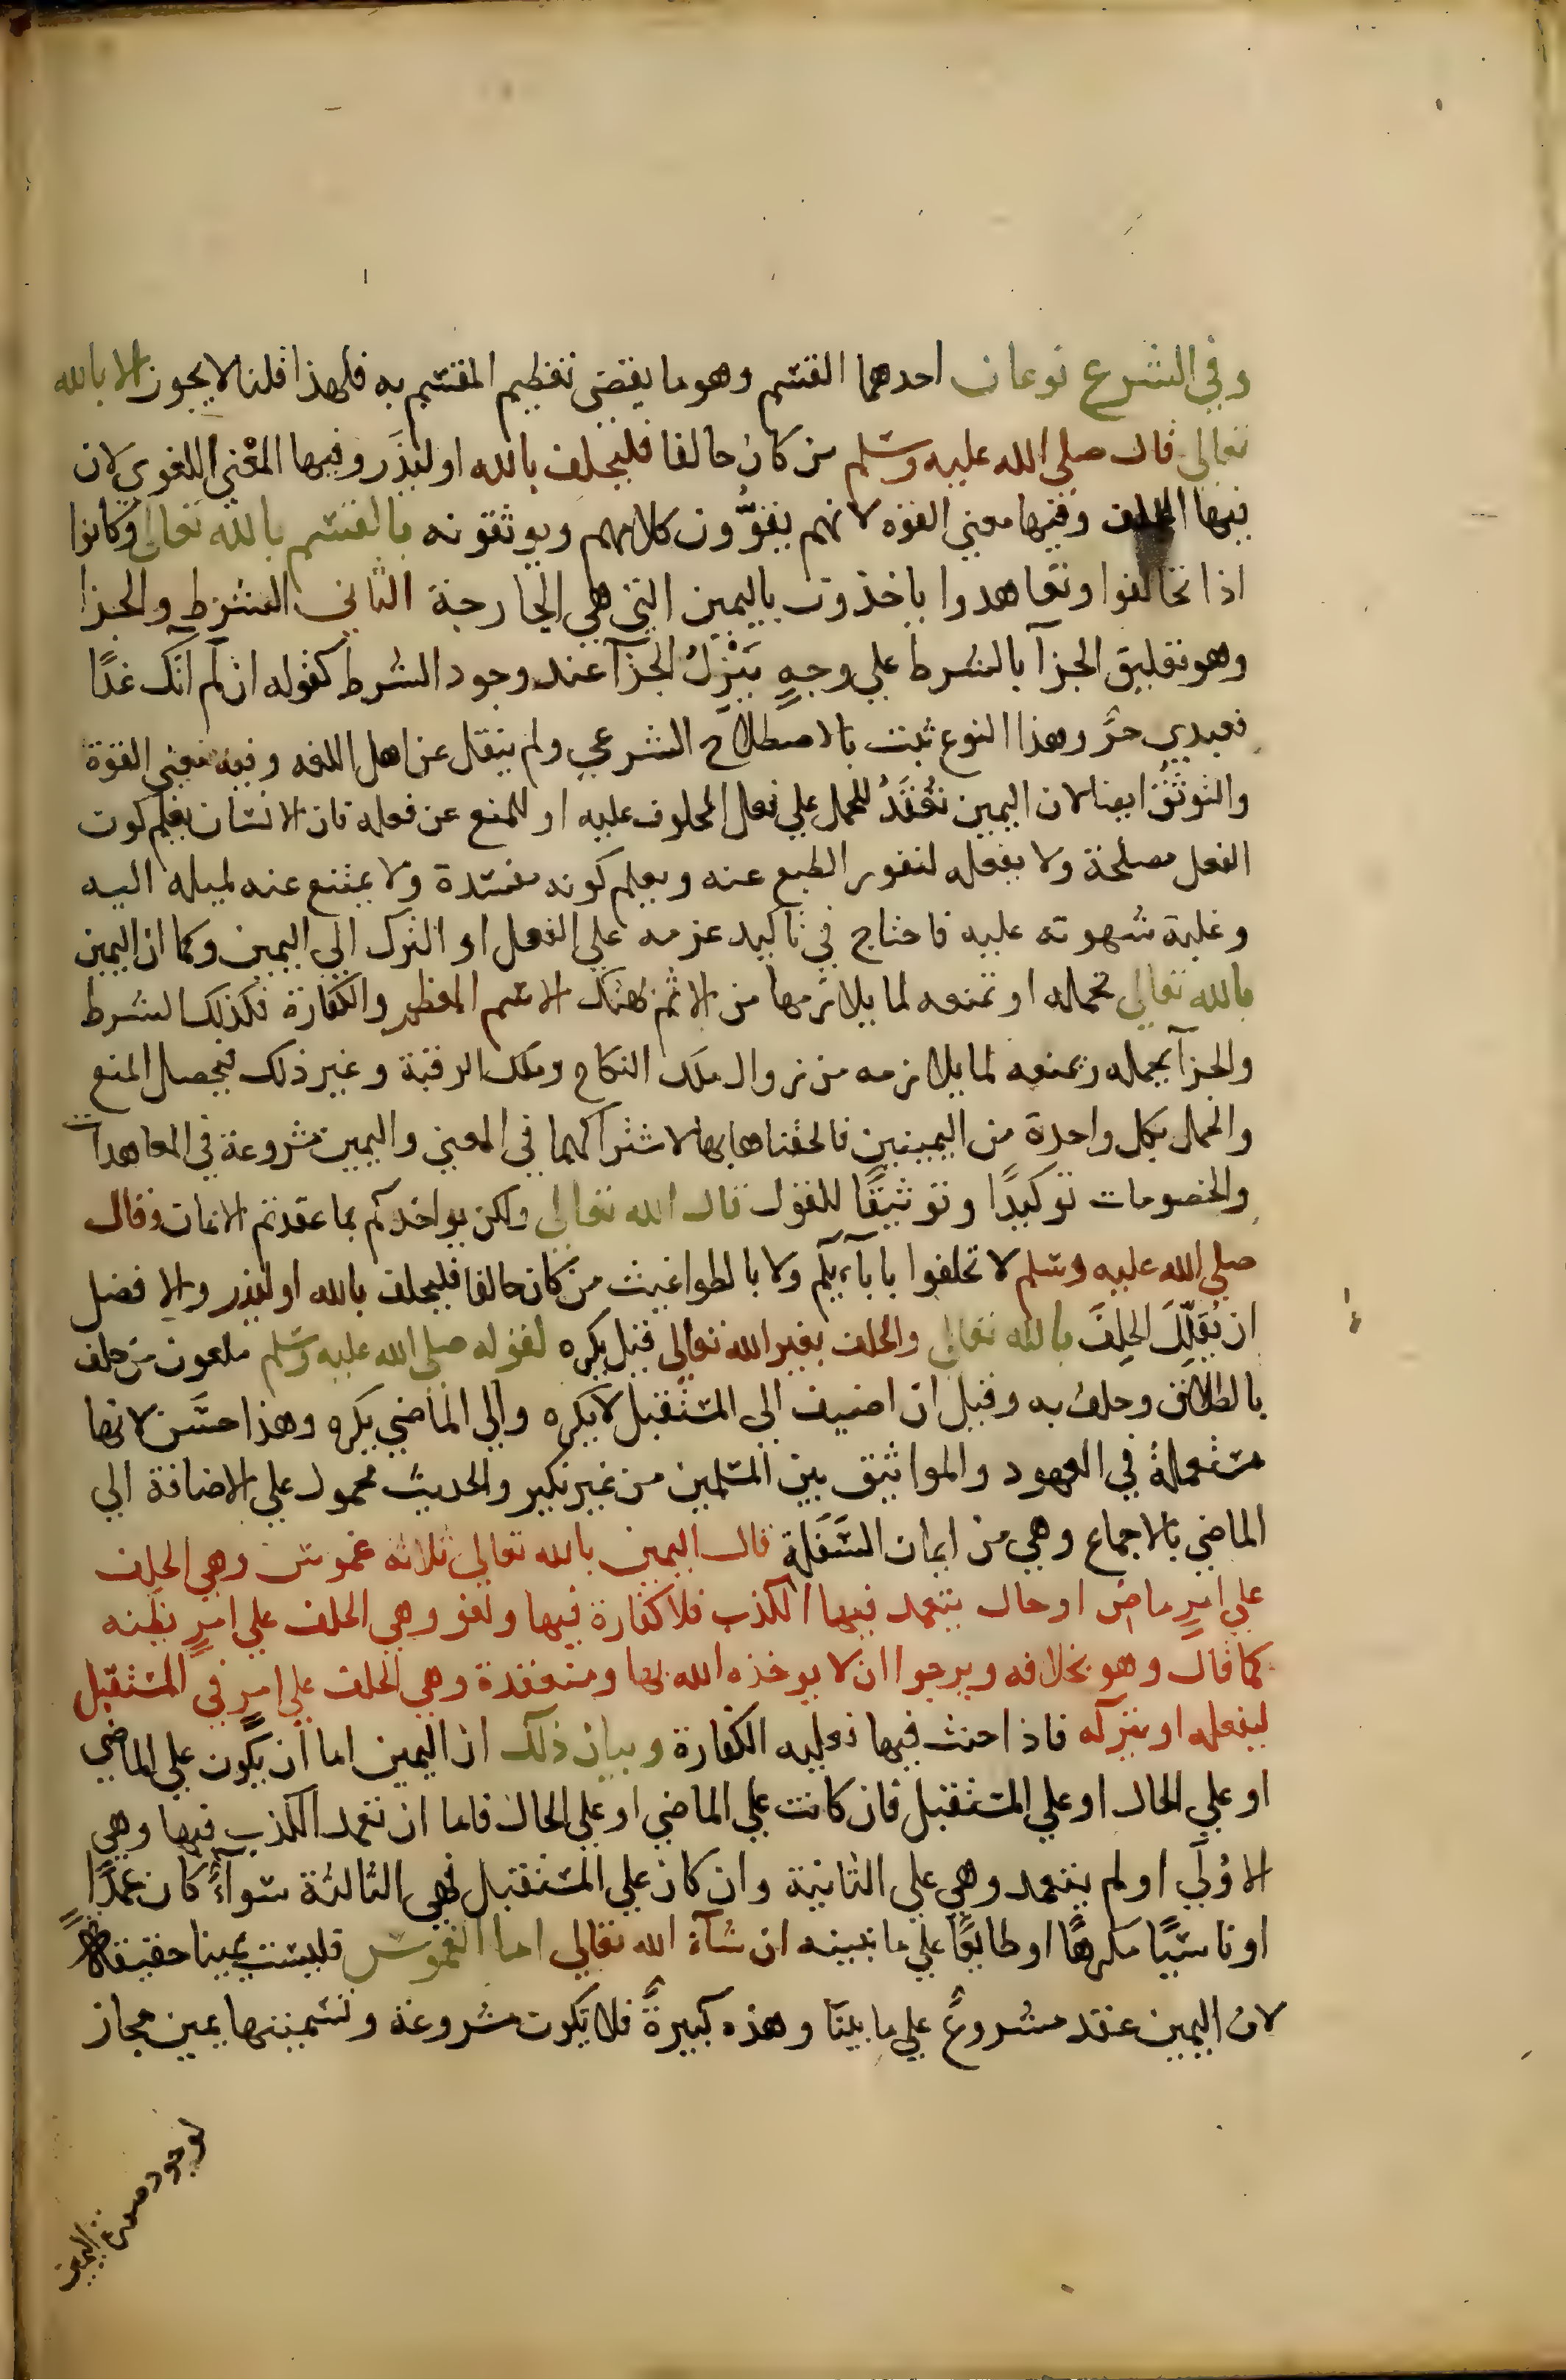 وفي الشرع نوعان احدهما القسم وهو ما يقتضي تعظيم المقسم به فلهذا قلنا لا يجوز الا بالله
تعالى قال صلى الله عليه وسلم من كان حالفا فليحلف بالله او ليذر وفيها المعنى اللغوي لان
فيها الحلف وفيها معنى القوة لانهم يقوون كلامهم ويوثقونه بالقسم بالله تعالى وكانوا
اذا تحالفوا وتعاهدوا ياخذون باليمين التي هي الجارحة الثاني الشرط والجزا
وهو تعليق الجزآ بالشرط علي وجهٍ يَنْزِلُ الجزآ عند وجود الشرط كقوله ان لم آتك غدًا
فعبدي حرٌ وهذا النوع ثبت بالاصطلاح الشرعي ولم ينقل عن اهل اللغه وفيه معنى القوة
والتوثق ايضا لان اليمين تُعْقَدُ للحمل علي فعل المحلوف عليه او للمنع عن فعله فان الانسان يعلم كون
الفعل مصلحة ولا يفعله لنفور الطبع عنه ويعلم كونه مفسدة ولا يمتنع عنه لميله اليه
وغلبة شهوته عليه فاحتاج في تاكيد عزمه علي الفعل او الترك الي اليمين وكما ان اليمين
بالله تعالى تحمله او تمنعه لما يلازمها من الاثم بهتك الاسم المعظم والكفارة فكذلك الشرط
والجزآ يحمله ويمنعه لما يلازمه من زوال ملك النكاح وملك الرقبة وغير ذلك فيحصل المنع
والحمل بكل واحدة من اليمينين فالحقناها بها لاشتراكهما في المعنى واليمين مشروعة في المعاهدات
والخصومات توكيدًا وتوثيقًا للقول قال الله تعالى ولكن يواخذكم بما عقدتم الايمان وقال
صلى الله عليه وسلم لا تحلفوا باباآيكم ولا بالطواغيت من كان حالفا فليحلف بالله او ليذر والافضل
ان يُقَلِّلَ الحلِفَ بالله تعالى والحلف بغير الله تعالى قيل يكره لقوله صلى الله عليه وسلم ملعون من حلف
بالطلاق وحلف به وقيل ان اضيف الى المستقبل لا يكره والى الماضي يكره وهذا حسن لانها
مستعملة في العهود والمواثيق بين المسلمين من غير نكير والحديث محمول علي الاضافة الي
الماضي بالاجماع وهي من ايمان السَّفَلة قال اليمين بالله تعالى ثلاثة غموس وهي الحلف
علي امرٍ ماضٍ او حال يتعمد فيها الكذب فلا كفارة فيها ولغو وهي الحلف علي امرٍ يظنه
كما قال وهو بخلافه ويرجوا ان لا يوخذه الله بها ومنعقدة وهي الحلف علي امرٍ في المستقبل
ليفعله او يتركه فاذا حنث فيها فعليه الكفارة وبيان ذلك ان اليمين اما ان يكون علي الماضي
او علي الحال او علي المستقبل فان كانت علي الماضي او علي الحال فاما ان تعمد الكذب فيها وهي
الاوُلي او لم يتعمد وهي علي الثانية وان كان علي المستقبل فهي الثالثة سوآء كان عمدًا
او ناسيًا مكرهًا او طايعًا علي ما نبينه ان شآء الله تعالى اما الغموس فليست يمينا حقيقة
لان اليمين عقد مشروعٌ علي ما بينا وهذه كبيرةٌ فلا يكون مشروعة وتسميتها يمين مجاز
لوجود صورة اليمين